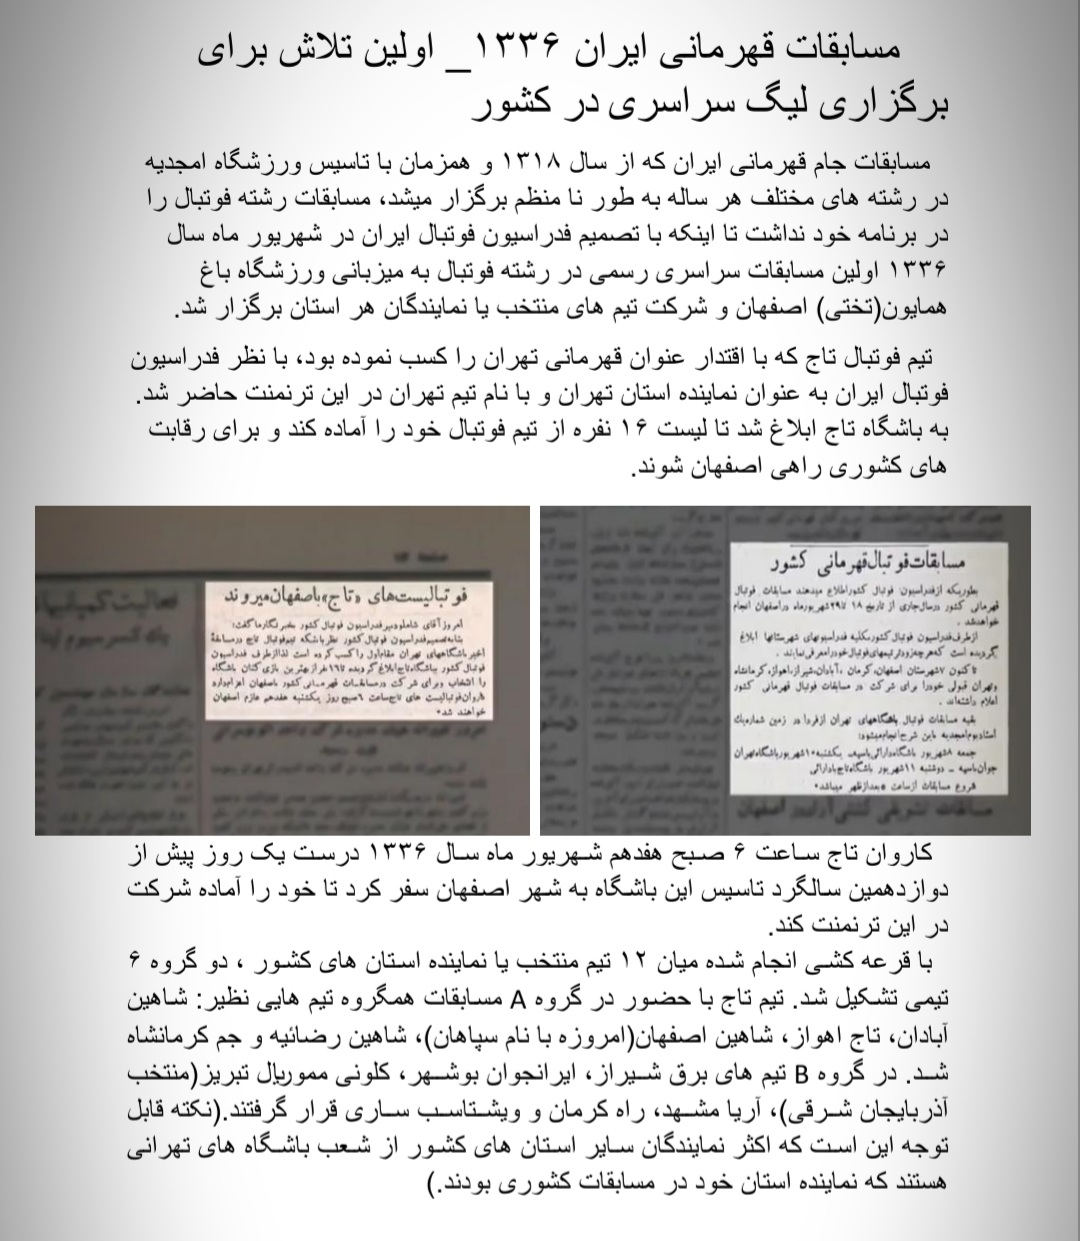 مسابقات قهرمانی ایران ۱۳۳۶_ اولین تلاش برای
برگزاری لیگ سراسری در کشور
مسابقات جام قهرمانی ایران که از سال ۱۳۱۸ و همزمان با تاسیس ورزشگاه امجدیه
در رشته های مختلف هر ساله به طور نا منظم برگزار میشد، مسابقات رشته فوتبال را
در برنامه خود نداشت تا اینکه با تصمیم فدراسیون فوتبال ایران در شهریور ماه سال
۱۳۳۶ اولین مسابقات سراسری رسمی در رشته فوتبال به میزبانی ورزشگاه باغ
همایون(تختی) اصفهان و شرکت تیم های منتخب یا نمایندگان هر استان برگزار شد.
تیم فوتبال تاج که با اقتدار عنوان قهرمانی تهران را کسب نموده بود، با نظر فدراسیون
فوتبال ایران به عنوان نماینده استان تهران و با نام تیم تهران در این ترنمنت حاضر شد.
به باشگاه تاج ابلاغ شد تا لیست ۱۶ نفره از تیم فوتبال خود را آماده کند و برای رقابت
های کشوری راهی اصفهان شوند.
مسابقات فوتبال قهرمانی کشور
بطوریکه از فدراسیون فوتبال کشور اطلاع میدهند مسابقات فوتبال
قهرمانی کشور در سال جاری از تاریخ ۱۸ تا ۲۹ شهریور ماه در اصفهان انجام
خواهد شد.
از طرف فدراسیون فوتبال کشور بکلیه فدراسیونهای شهرستانها ابلاغ
گردیده است که هرچه زودتر تیمهای فوتبال خود را معرفی نمایند.
تا کنون ۷ شهرستان اصفهان، کرمان، آبادان، شیراز، اهواز، کرمانشاه
وتهران قبولی خود را برای شرکت در مسابقات فوتبال قهرمانی کشور
اعلام داشته‌اند.
بقیه مسابقات فوتبال باشگاههای تهران از فردا در زمین شماره یک
امجدیه باین شرح انجام میشود:
جمعه ۸ شهریور باشگاه دارائی باسپه. یکشنبه ۱۰ شهریور باشگاه تهران
جوان باسپه ـ دوشنبه ۱۱ شهریور باشگاه تاج بادارائی
شروع مسابقات از ساعت ۵ بعد از ظهر میباشد.
فوتبالیست‌های «تاج» باصفهان میروند
امروز آقای دبیر فدراسیون فوتبال کشور بخبرنگار ما گفت:
بنا به تصمیم فدراسیون فوتبال کشور نظر باینکه تیم فوتبال تاج در مسابقهٔ
اخیر باشگاههای تهران مقام اول را کسب کرده است لذا از طرف فدراسیون
فوتبال کشور بباشگاه تاج ابلاغ گردیده تا ۱۶ نفر از بهترین بازی کنان باشگاه
را انتخاب و برای شرکت در مسابقات قهرمانی کشور باصفهان اعزام دارد
کاروان فوتبالیست های تاج ساعت ۶ صبح روز یکشنبه هفدهم عازم اصفهان
خواهند شد.
کاروان تاج ساعت ۶ صبح هفدهم شهریور ماه سال ۱۳۳۶ درست یک روز پیش از
دوازدهمین سالگرد تاسیس این باشگاه به شهر اصفهان سفر کرد تا خود را آماده شرکت
در این ترنمنت کند.
با قرعه کشی انجام شده میان ۱۲ تیم منتخب یا نماینده استان های کشور ، دو گروه ۶
تیمی تشکیل شد. تیم تاج با حضور در گروه A مسابقات همگروه تیم هایی نظیر: شاهین
آبادان، تاج اهواز، شاهین اصفهان(امروزه با نام سپاهان)، شاهین رضائیه و جم کرمانشاه
شد. در گروه B تیم های برق شیراز، ایرانجوان بوشهر، کلونی مموریال تبریز(منتخب
آذربایجان شرقی)، آریا مشهد، راه کرمان و ویشتاسب ساری قرار گرفتند.(نکته قابل
توجه این است که اکثر نمایندگان سایر استان های کشور از شعب باشگاه های تهرانی
هستند که نماینده استان خود در مسابقات کشوری بودند.)